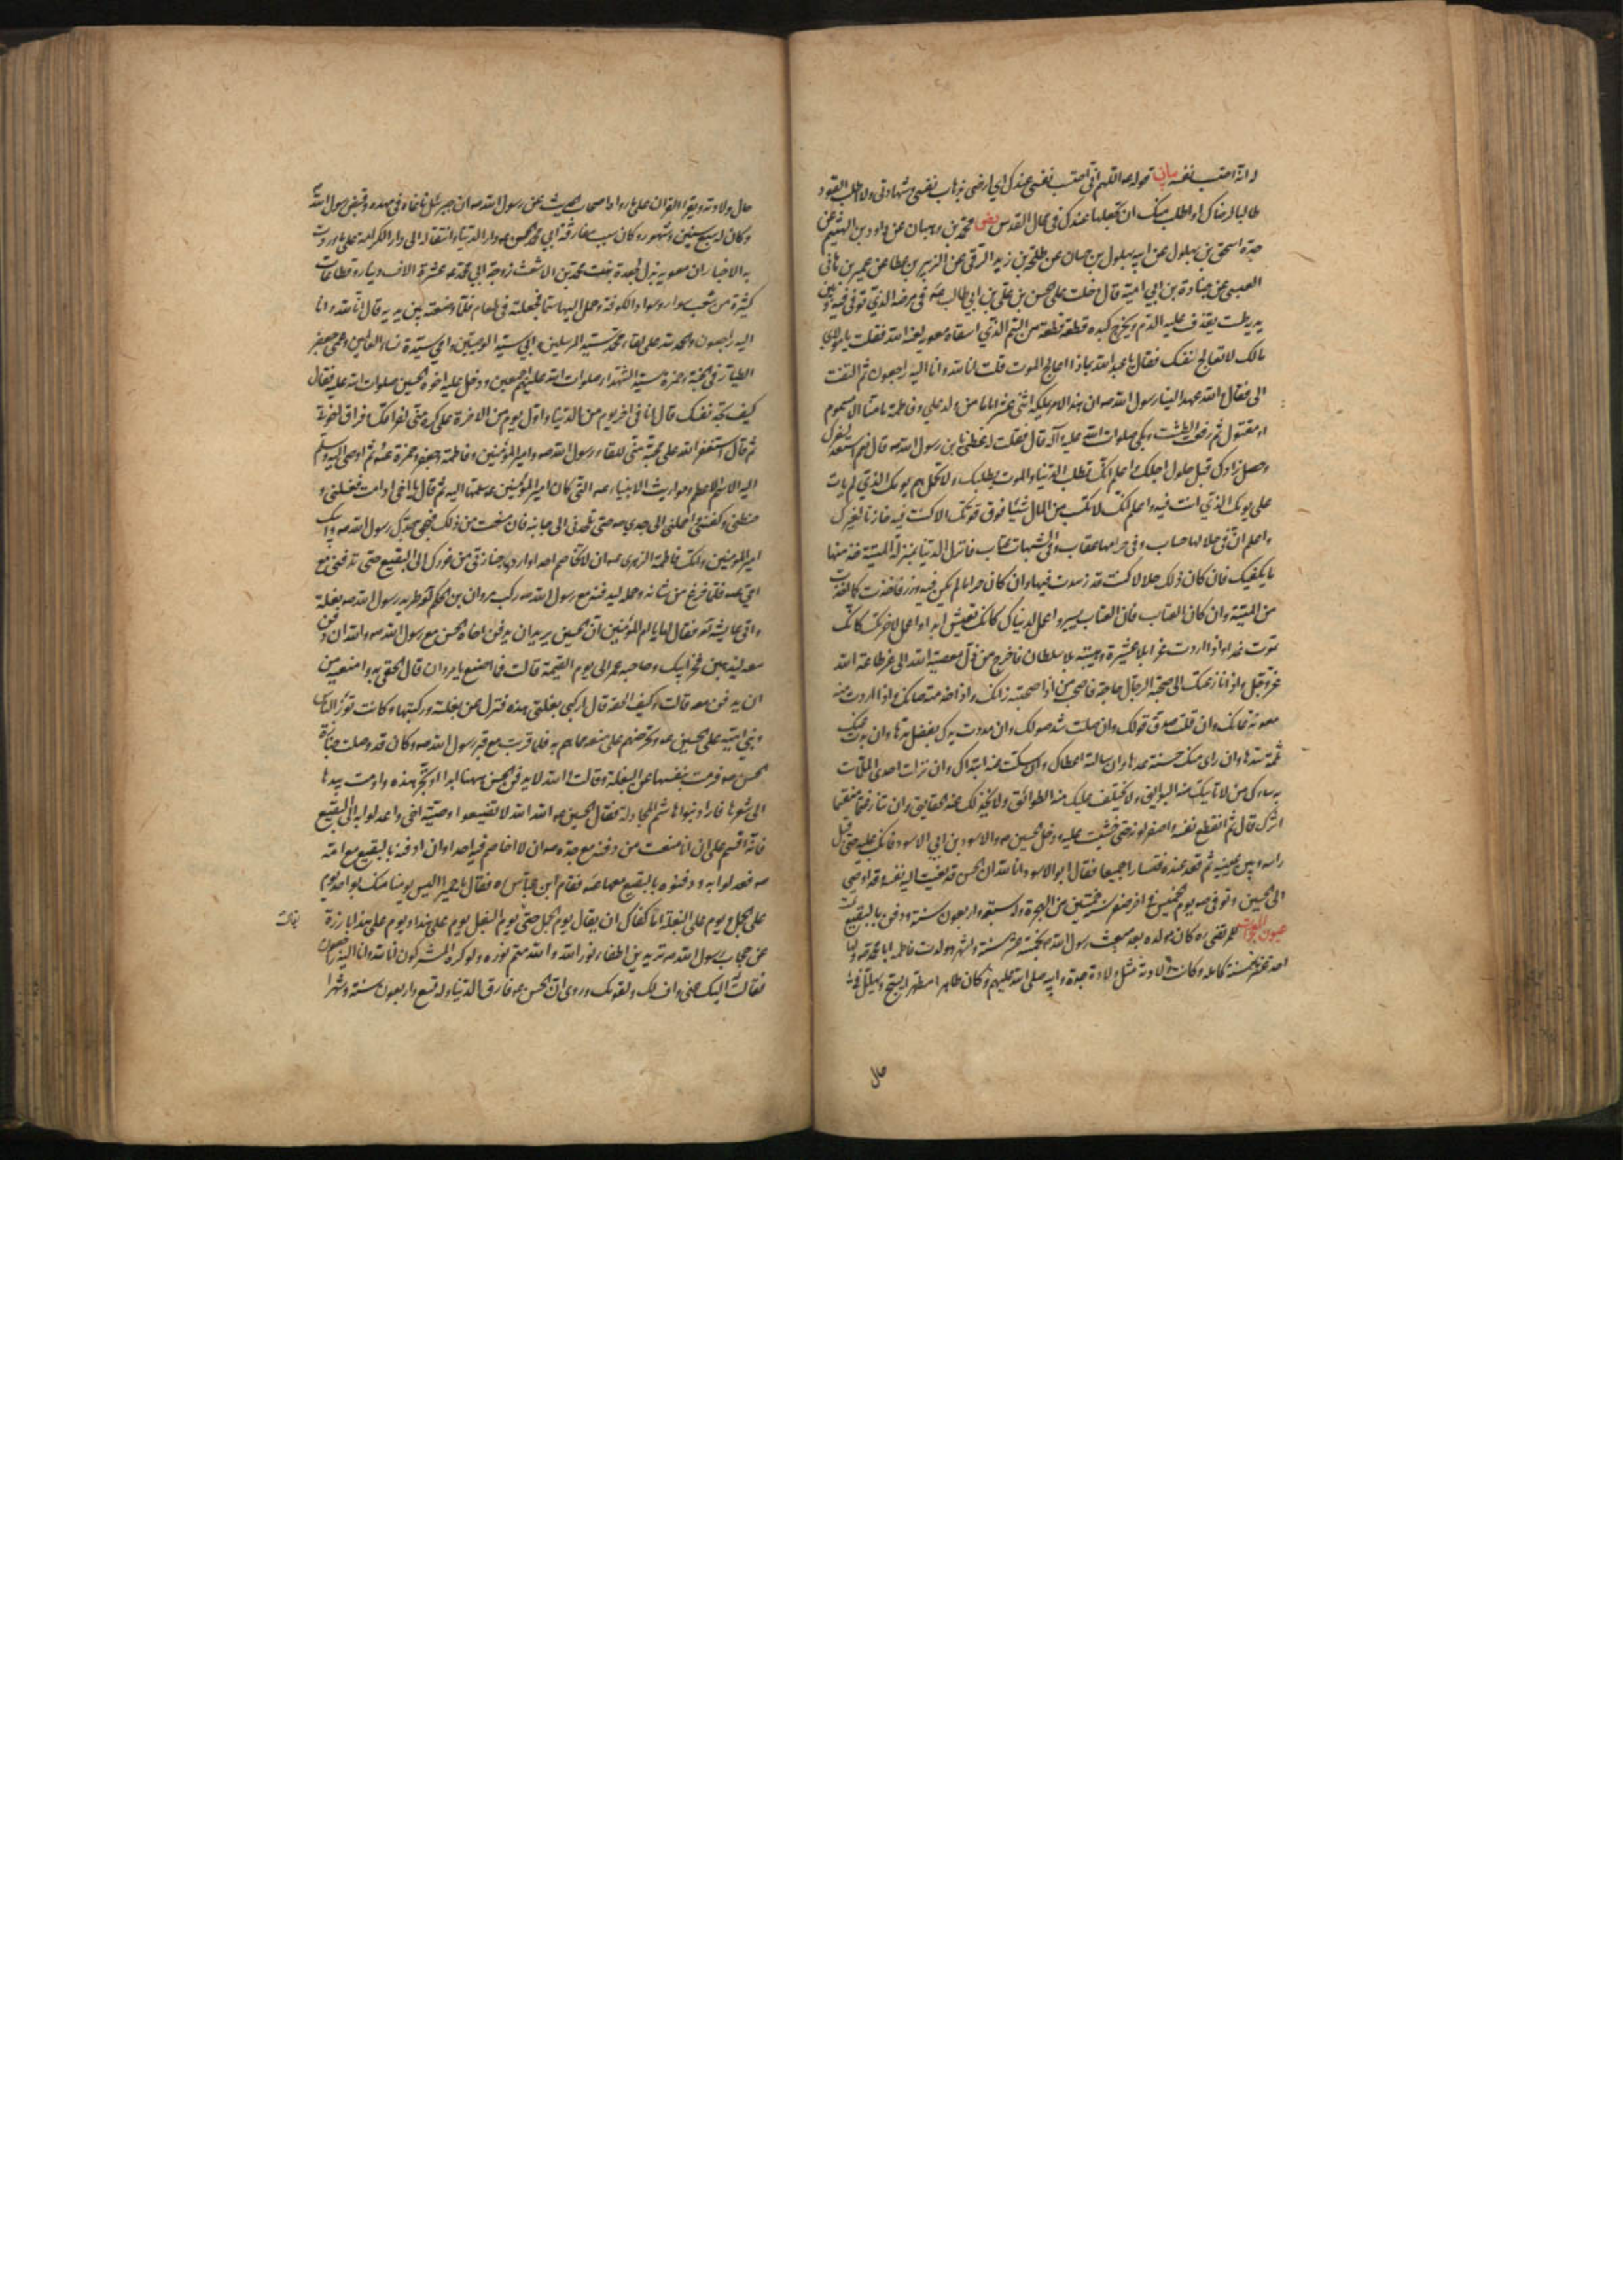 له انه احتسب نفسه بيان قوله ع اللهم اني احتسب نفسي عندك اي ارضى بذهاب نفسي وشهادتي ولا اطلب القود
طالبا لرضاك او اطلب منك ان تجعلها عندك في محال القدس نص محمد بن وهبان عن داود بن الهيثم عن
جده اسحق بن بهلول عن ابيه بهلول بن حسان عن طلحة بن زيد الرقي عن الزبير بن عطا عن عمير بن هاني
العبسي عن جنادة بن ابي امية قال دخلت على الحسن بن علي بن ابي طالب ع في مرضه الذي توفي فيه وبين
يديه طشت يقذف عليه الدم ويخرج كبده قطعة قطعة من السم الذي اسقاه معوية لعنه الله فقلت يا مولاي
مالك لا تعالج نفسك فقال يا عبد الله بماذا اعالج الموت قلت انا لله وانا اليه راجعون ثم التفت
الي فقال والله عهد الينا رسول الله ص ان هذا الامر يملكه اثنى عشر اماما من ولد علي وفاطمة ما منا الا مسموم
او مقتول ثم رفعت الطشت وبكى صلوات الله عليه وآله قال فقلت له عظني يا بن رسول الله ص قال نعم استعد لسفرك
وحصل زادك قبل حلول اجلك واعلم انك تطلب الدنيا والموت يطلبك ولا تحمل هم يومك الذي لم يات
على يومك الذي انت فيه واعلم انك لا تكسب من المال شيئا فوق قوتك الا كنت فيه خازنا لغيرك
واعلم ان في حلالها حساب وفي حرامها عقاب وفي الشبهات عتاب فانزل الدنيا بمنزلة الميتة خذ منها
ما يكفيك فان كان ذلك حلالا كنت قد زهدت فيها وان كان حراما لم يكن فيه وزر فاخذت كما اخذت
من الميتة وان كان العتاب فان العتاب يسير واعمل لدنياك كانك تعيش ابدا واعمل لاخرتك كانك
تموت غدا واذا اردت عزا بلا عشيرة وهيبة بلا سلطان فاخرج من ذل معصية الله الى عز طاعة الله
عز وجل واذا نازعتك الى صحبة الرجال حاجة فاصحب من اذا صحبته زانك واذا خدمته صانك واذا اردت منه
معونة عانك وان قلت صدق قولك وان صلت شد صولك وان مددت يدك بفضل مدها وان بدت عنك
ثلمة سدها وان راى منك حسنة عدها وان سالته اعطاك وان سكت عنه ابتداك وان نزلت احدى الملمات
به ساءك من لا تاتيك منه البوايق ولا يختلف عليك منه الطوائق ولا يخذلك عند الحقايق وان تنازعتما منقسما
اثرك قال ثم انقطع نفسه واصفر لونه حتى خشيت عليه ودخل الحسين ع والاسود بن ابي الاسود فانكب عليه حتى قبل
راسه وبين عينيه ثم قعد عنده فتسارا جميعا فقال ابو الاسود انا لله ان الحسن قد نعيت اليه نفسه وقد اوصى
الى الحسين ع وتوفي ع يوم الخميس في اخر صفر سنة خمسين من الهجرة وله سبعة واربعون سنة ودفن بالبقيع
عيون المعجزات للمرتضى ره كان مولده بعد مبعث رسول الله ص بخمسة عشر سنة واشهر وولدت فاطمة ابا محمد ع ولها
احد عشر سنة كاملة وكانت ولادته مثل ولادة جده وابيه صلى الله عليهم وكان طاهرا مطهرا يسبح ويهلل في
حال
حال ولادته ويقرا القران على ما رواه اصحاب الحديث عن رسول الله ص ان جبرئيل ناغاه في مهده وقبض رسول الله
وكان له سبع سنين وشهور وكان سبب مفارقة ابي محمد الحسن ع دار الدنيا وانتقاله الى دار الكرامة على ما وردت
به الاخبار ان معوية بذل لجعدة بنت محمد بن الاشعث زوجة ابي محمد ع عشرة الاف دينار وقطاعات
كثيرة من شعب سوار وسواد الكوفة وحمل اليها سما فجعلته في طعام فلما وضعته بين يديه قال انا لله وانا
اليه راجعون والحمد لله على لقاء محمد سيد المرسلين وابي سيد الوصيين وامي سيدة نساء العالمين وعمي جعفر
الطيار في الجنة وحمزة سيد الشهداء صلوات الله عليهم اجمعين ودخل عليه اخوه الحسين صلوات الله عليه فقال
كيف تجد نفسك قال انا في اخر يوم من الدنيا واول يوم من الاخرة على كره مني لفراقك وفراق اخوتي
ثم قال استغفر الله على محبة مني للقاء رسول الله ص وامير المؤمنين وفاطمة وجعفر وحمزة ع ثم اوصى اليه وسلم
اليه الاسم الاعظم ومواريث الانبياء ع التي كان امير المؤمنين ع سلمها اليه ثم قال يا اخي اذا مت فغسلني و
حنطني وكفني واحملني الى جدي ص حتى تلحدني الى جانبه فان منعت من ذلك فبحق جدك رسول الله ص وابيك
امير المؤمنين وامك فاطمة الزهرى ع ان لا تخاصم احدا واردد جنازتي من فورك الى البقيع حتى تدفني مع
امي ع فلما فرغ من شانه وحمله ليدفنه مع رسول الله ص ركب مروان بن الحكم طريد رسول الله ص بغلة
واتى عايشة فقال لها يا ام المؤمنين ان الحسين يريد ان يدفن اخاه الحسن مع رسول الله ص والله ان دفن
معه ليذهبن فخر ابيك وصاحبه عمر الى يوم القيمة قالت فما اصنع يا مروان قال الحقي به وامنعيه من
ان يدفن معه قالت وكيف الحقه قال اركبي بغلتي هذه فنزل عن بغلته وركبتها وكانت تؤز الناس
وبني امية على الحسين ع وتحرضهم على منعه مما هم به فلما قربت من قبر رسول الله ص وكان قد وصلت جنازة
الحسن ع فرمت بنفسها عن البغلة وقالت والله لا يدفن الحسن ههنا ابدا او تجز هذه واومت بيدها
الى شعرها فاراد بنو هاشم المجادلة فقال الحسين ع الله الله لا تضيعوا وصية اخي واعدلوا به الى البقيع
فانه اقسم علي ان انا منعت من دفنه مع جده ص ان لا اخاصم فيه احدا وان ادفنه بالبقيع مع امه
ع فعدلوا به ودفنوه بالبقيع معها ع فقام ابن عباس ره فقال يا حميرا ليس يومنا منك بواحد يوم
على الجمل ويوم على البغلة اما كفاك ان يقال يوم الجمل حتى يوم البغل يوم على هذا ويوم على هذا بارزة
عن حجاب رسول الله ص تريدين اطفاء نور الله والله متم نوره ولو كره المشركون انا لله وانا اليه راجعون
فقالت له اليك عني واف لك ولقومك وروي ان الحسن ع فارق الدنيا وله تسع واربعون سنة وشهرا